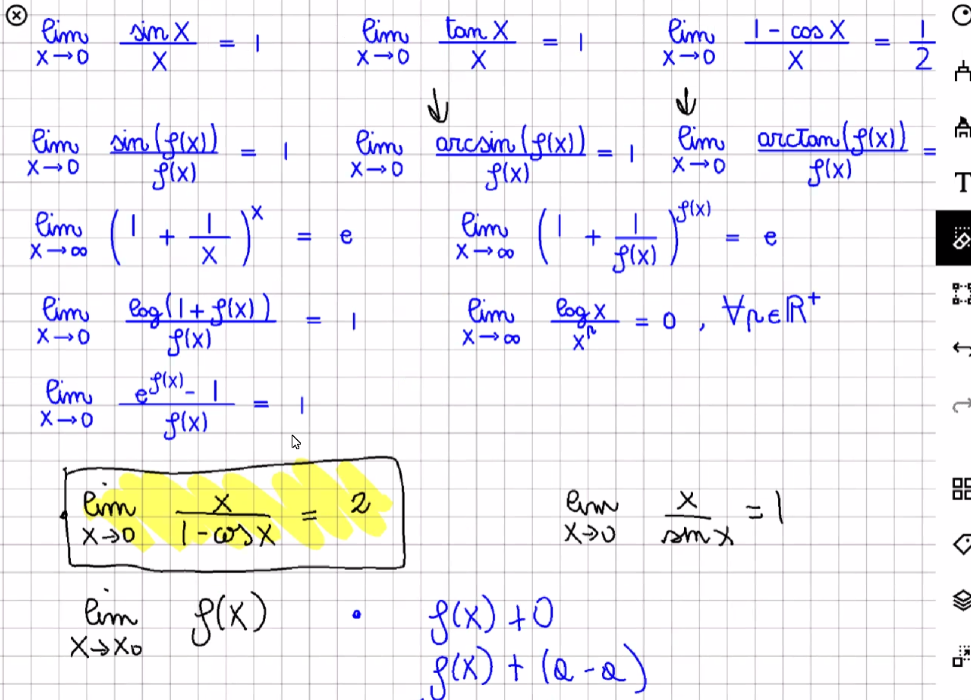 lim x→0 sin x / x = 1   lim x→0 tan x / x = 1   lim x→0 1 - cos x / x = 1/2
↓ ↓
lim x→0 sin(f(x)) / f(x) = 1   lim x→0 arcsin(f(x)) / f(x) = 1   lim x→0 arctan(f(x)) / f(x) =
lim x→∞ (1 + 1/x)^x = e   lim x→∞ (1 + 1/f(x))^f(x) = e
lim x→0 log(1 + f(x)) / f(x) = 1   lim x→∞ log x / x^p = 0 , ∀p∈ℝ⁺
lim x→0 e^f(x) - 1 / f(x) = 1
lim x→0 x / 1 - cos x = 2   lim x→0 x / sin x = 1
lim x→x₀ f(x)   • f(x) + 0
f(x) + (a - a)
T